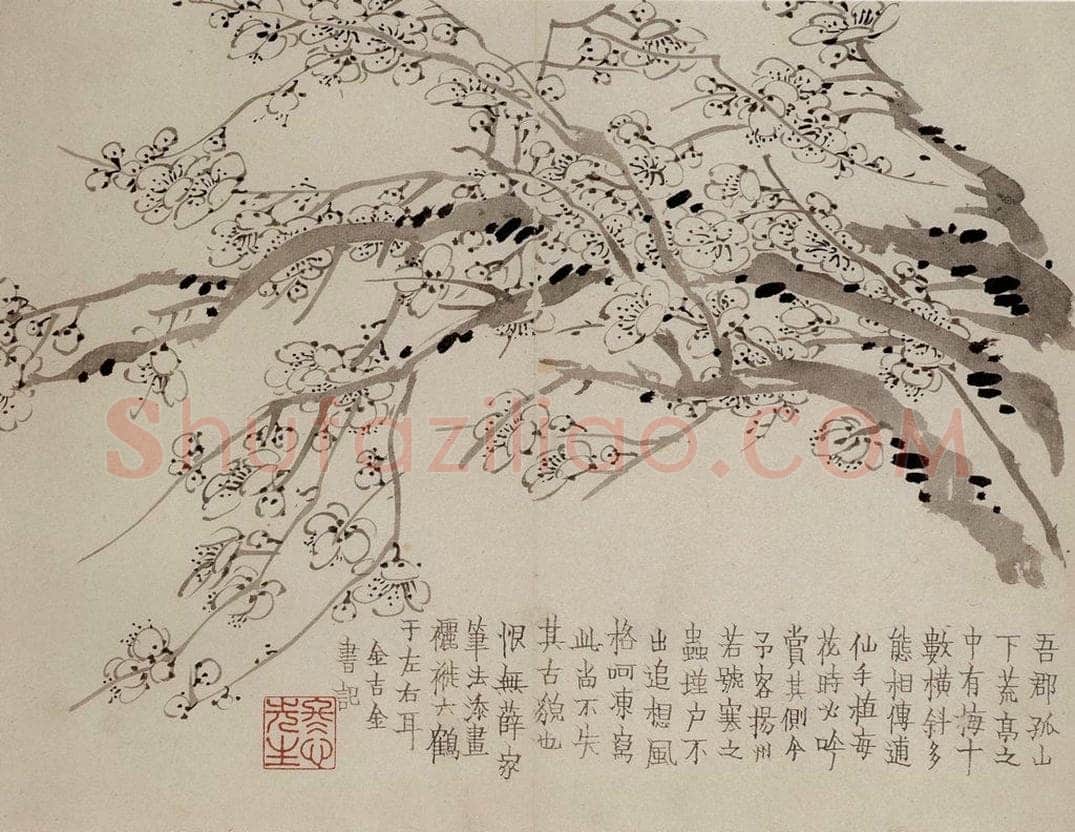 吾郡孤山
下荒亭之
中有梅十
數橫斜多
態相傳逋
仙手植每
花時必吟
賞其側今
予客揚州
若號寒之
蟲墐户不
出追想風
格呵凍寫
此尚不失
其古貌也
恨無薛家
筆法添畫
襹褷六鶴
于左右耳
金吉金
書記
Shufaziliao.COM